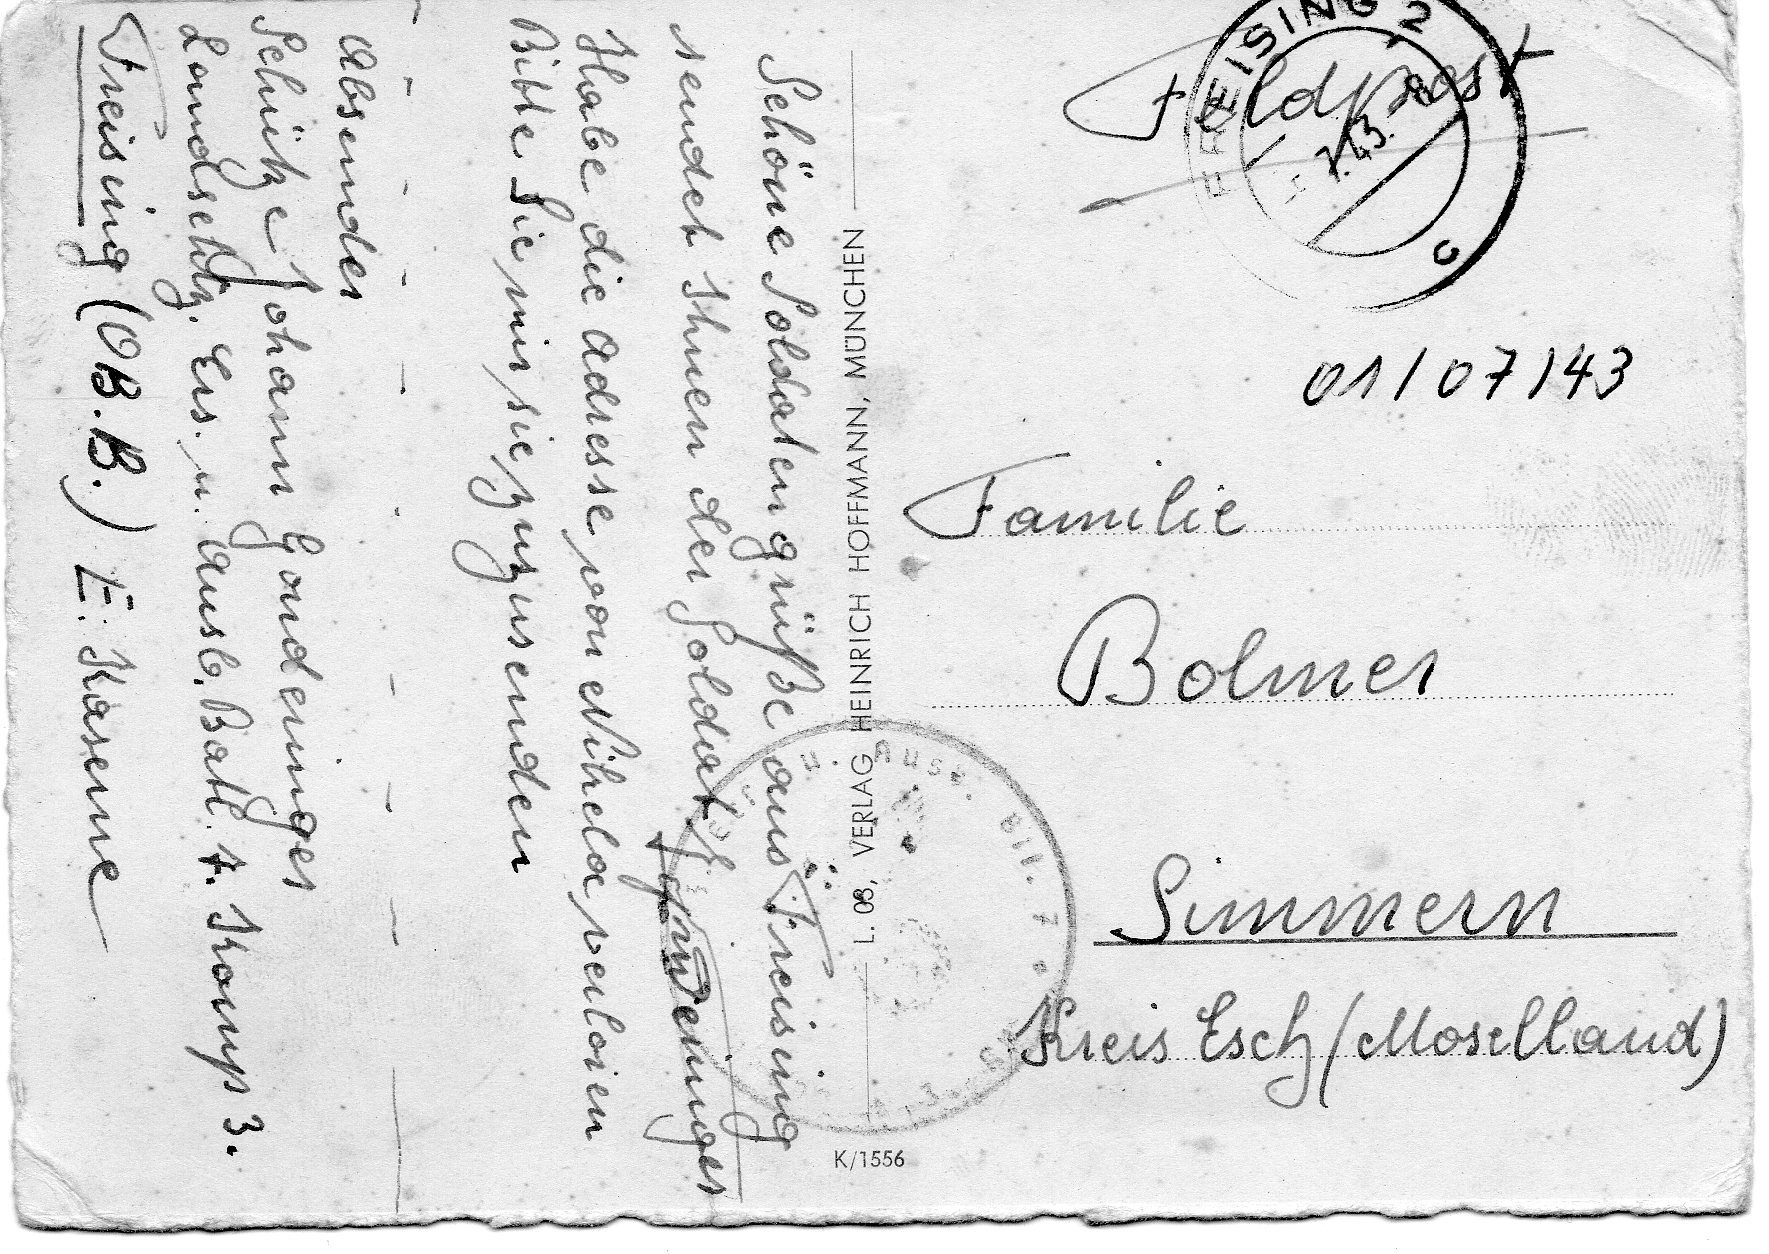 Feldpost
FREISING 2
7.43
c
01/07/43
Familie
Bolmer
Simmern
Kreis Esch (Moselland)
Schöne Soldatengrüße aus Freising
sendet Ihnen der Soldat
Gonderinger
Habe die Adresse von verloren
Bitte Sie mir sie zuzusenden
Absender
Schütze Johann Gonderinger
Landschtz. Ers. u. Ausb. Batl. 7. Komp 3.
Freising (OB.B.) E. Kaserne
L. 08, VERLAG HEINRICH HOFFMANN, MÜNCHEN
K/1556
u. Ausb. Btl. 7